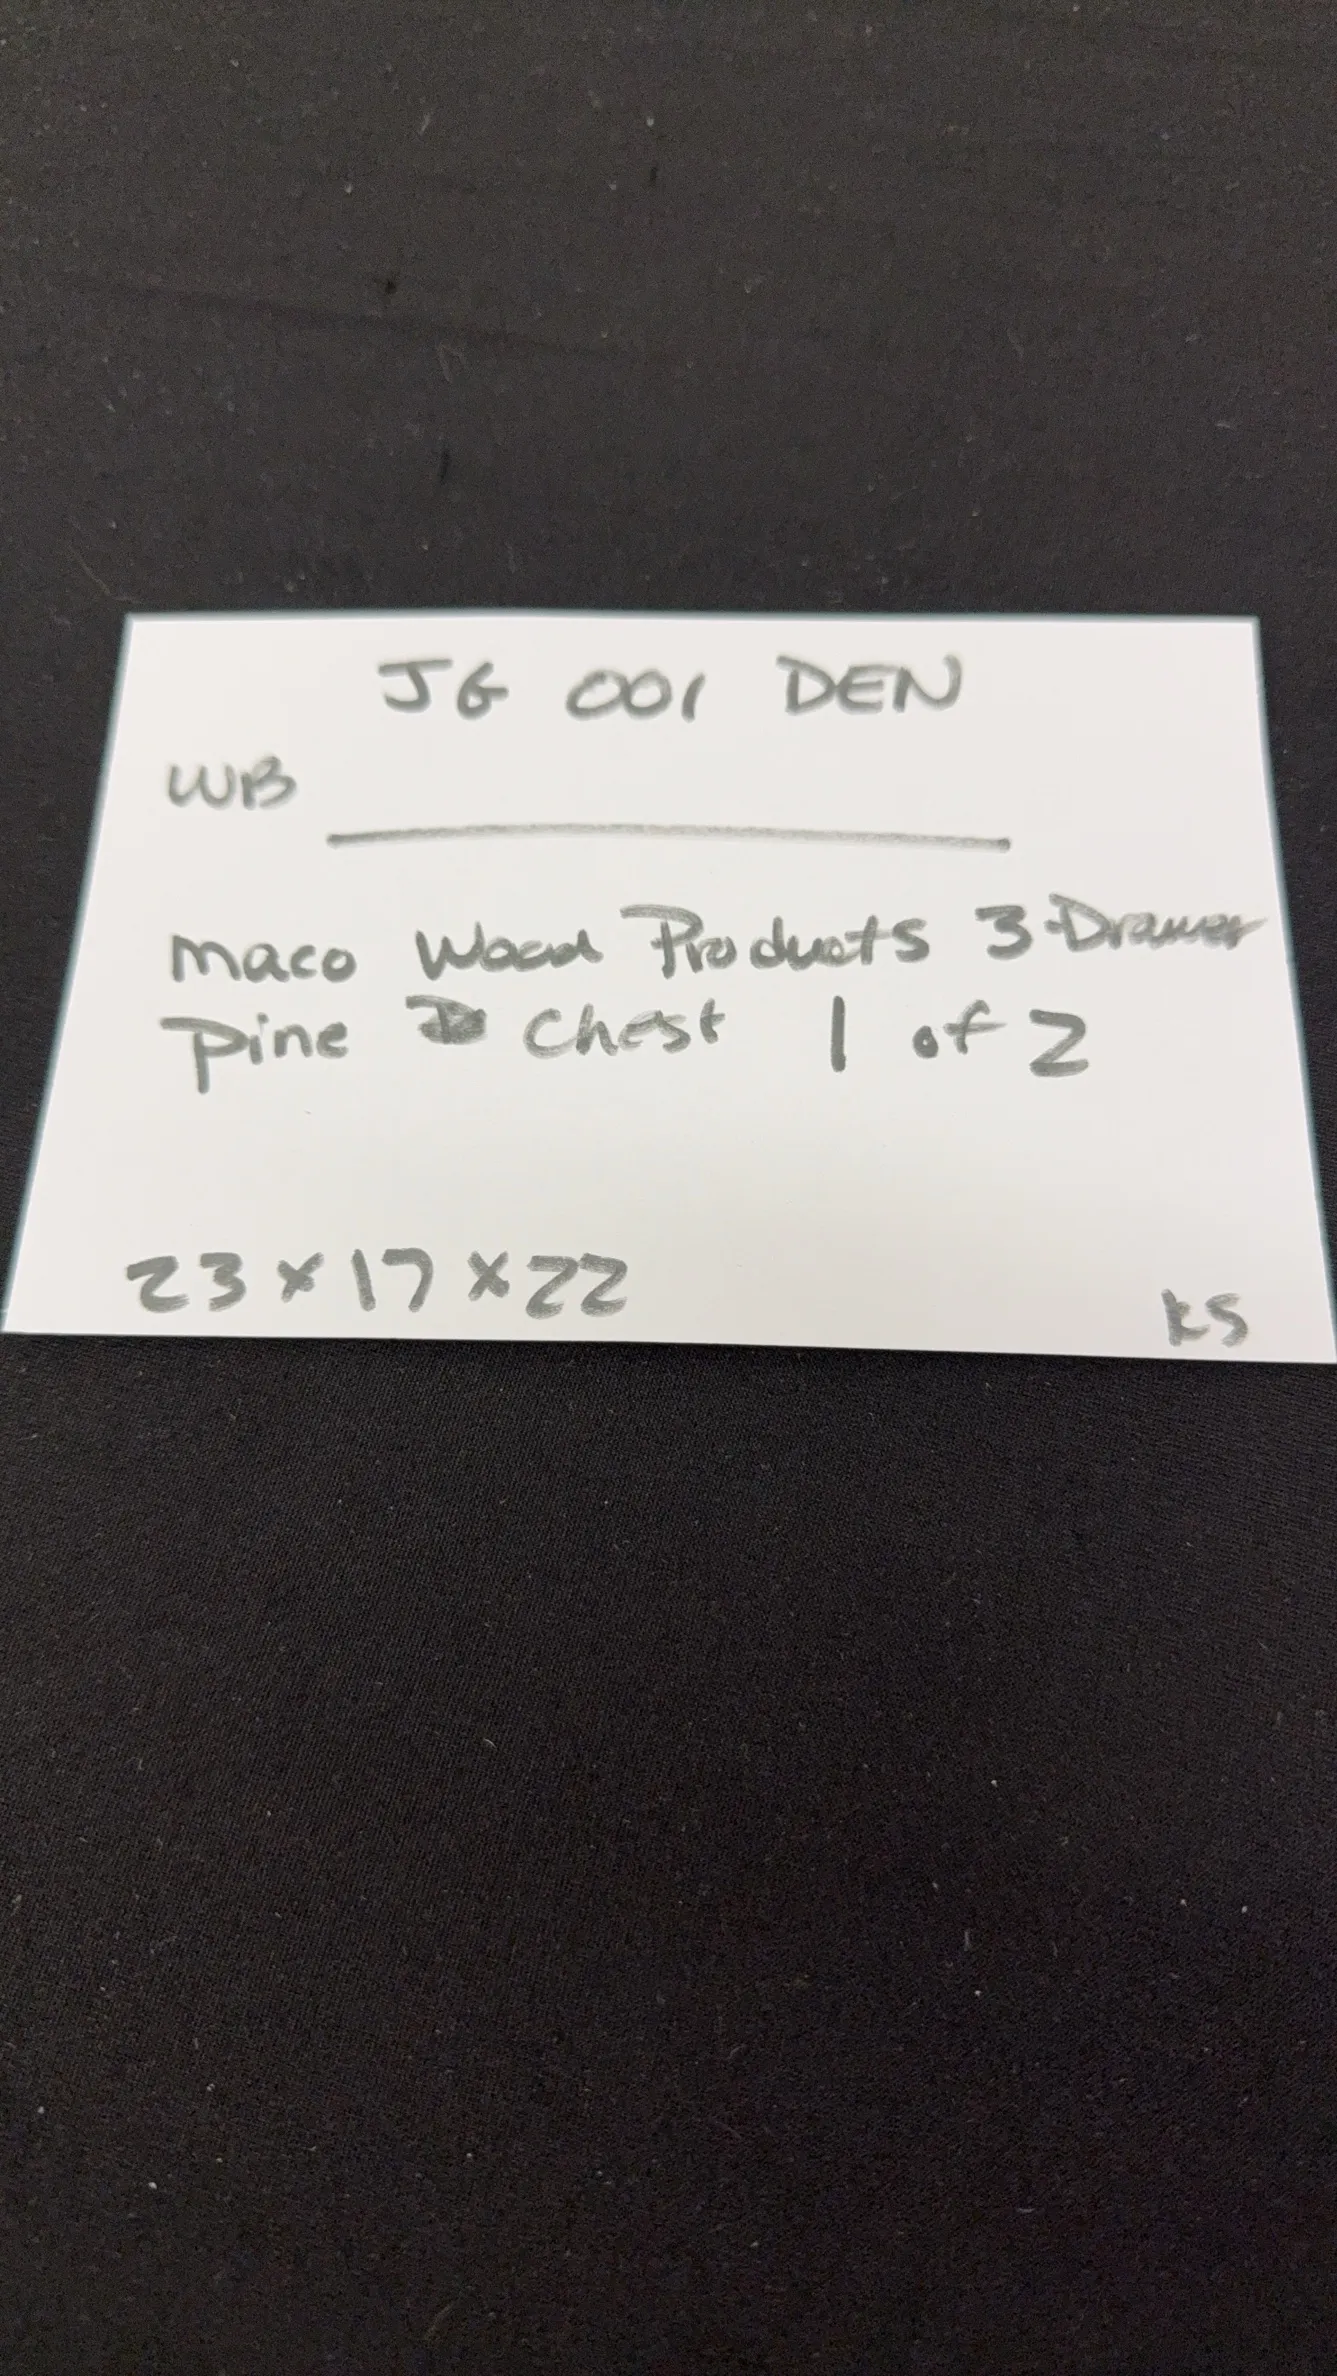 JG 001 DEN
WB
maco Wood Products 3-Drawer
Pine Chest 1 of 2
23 x 17 x 22
KS